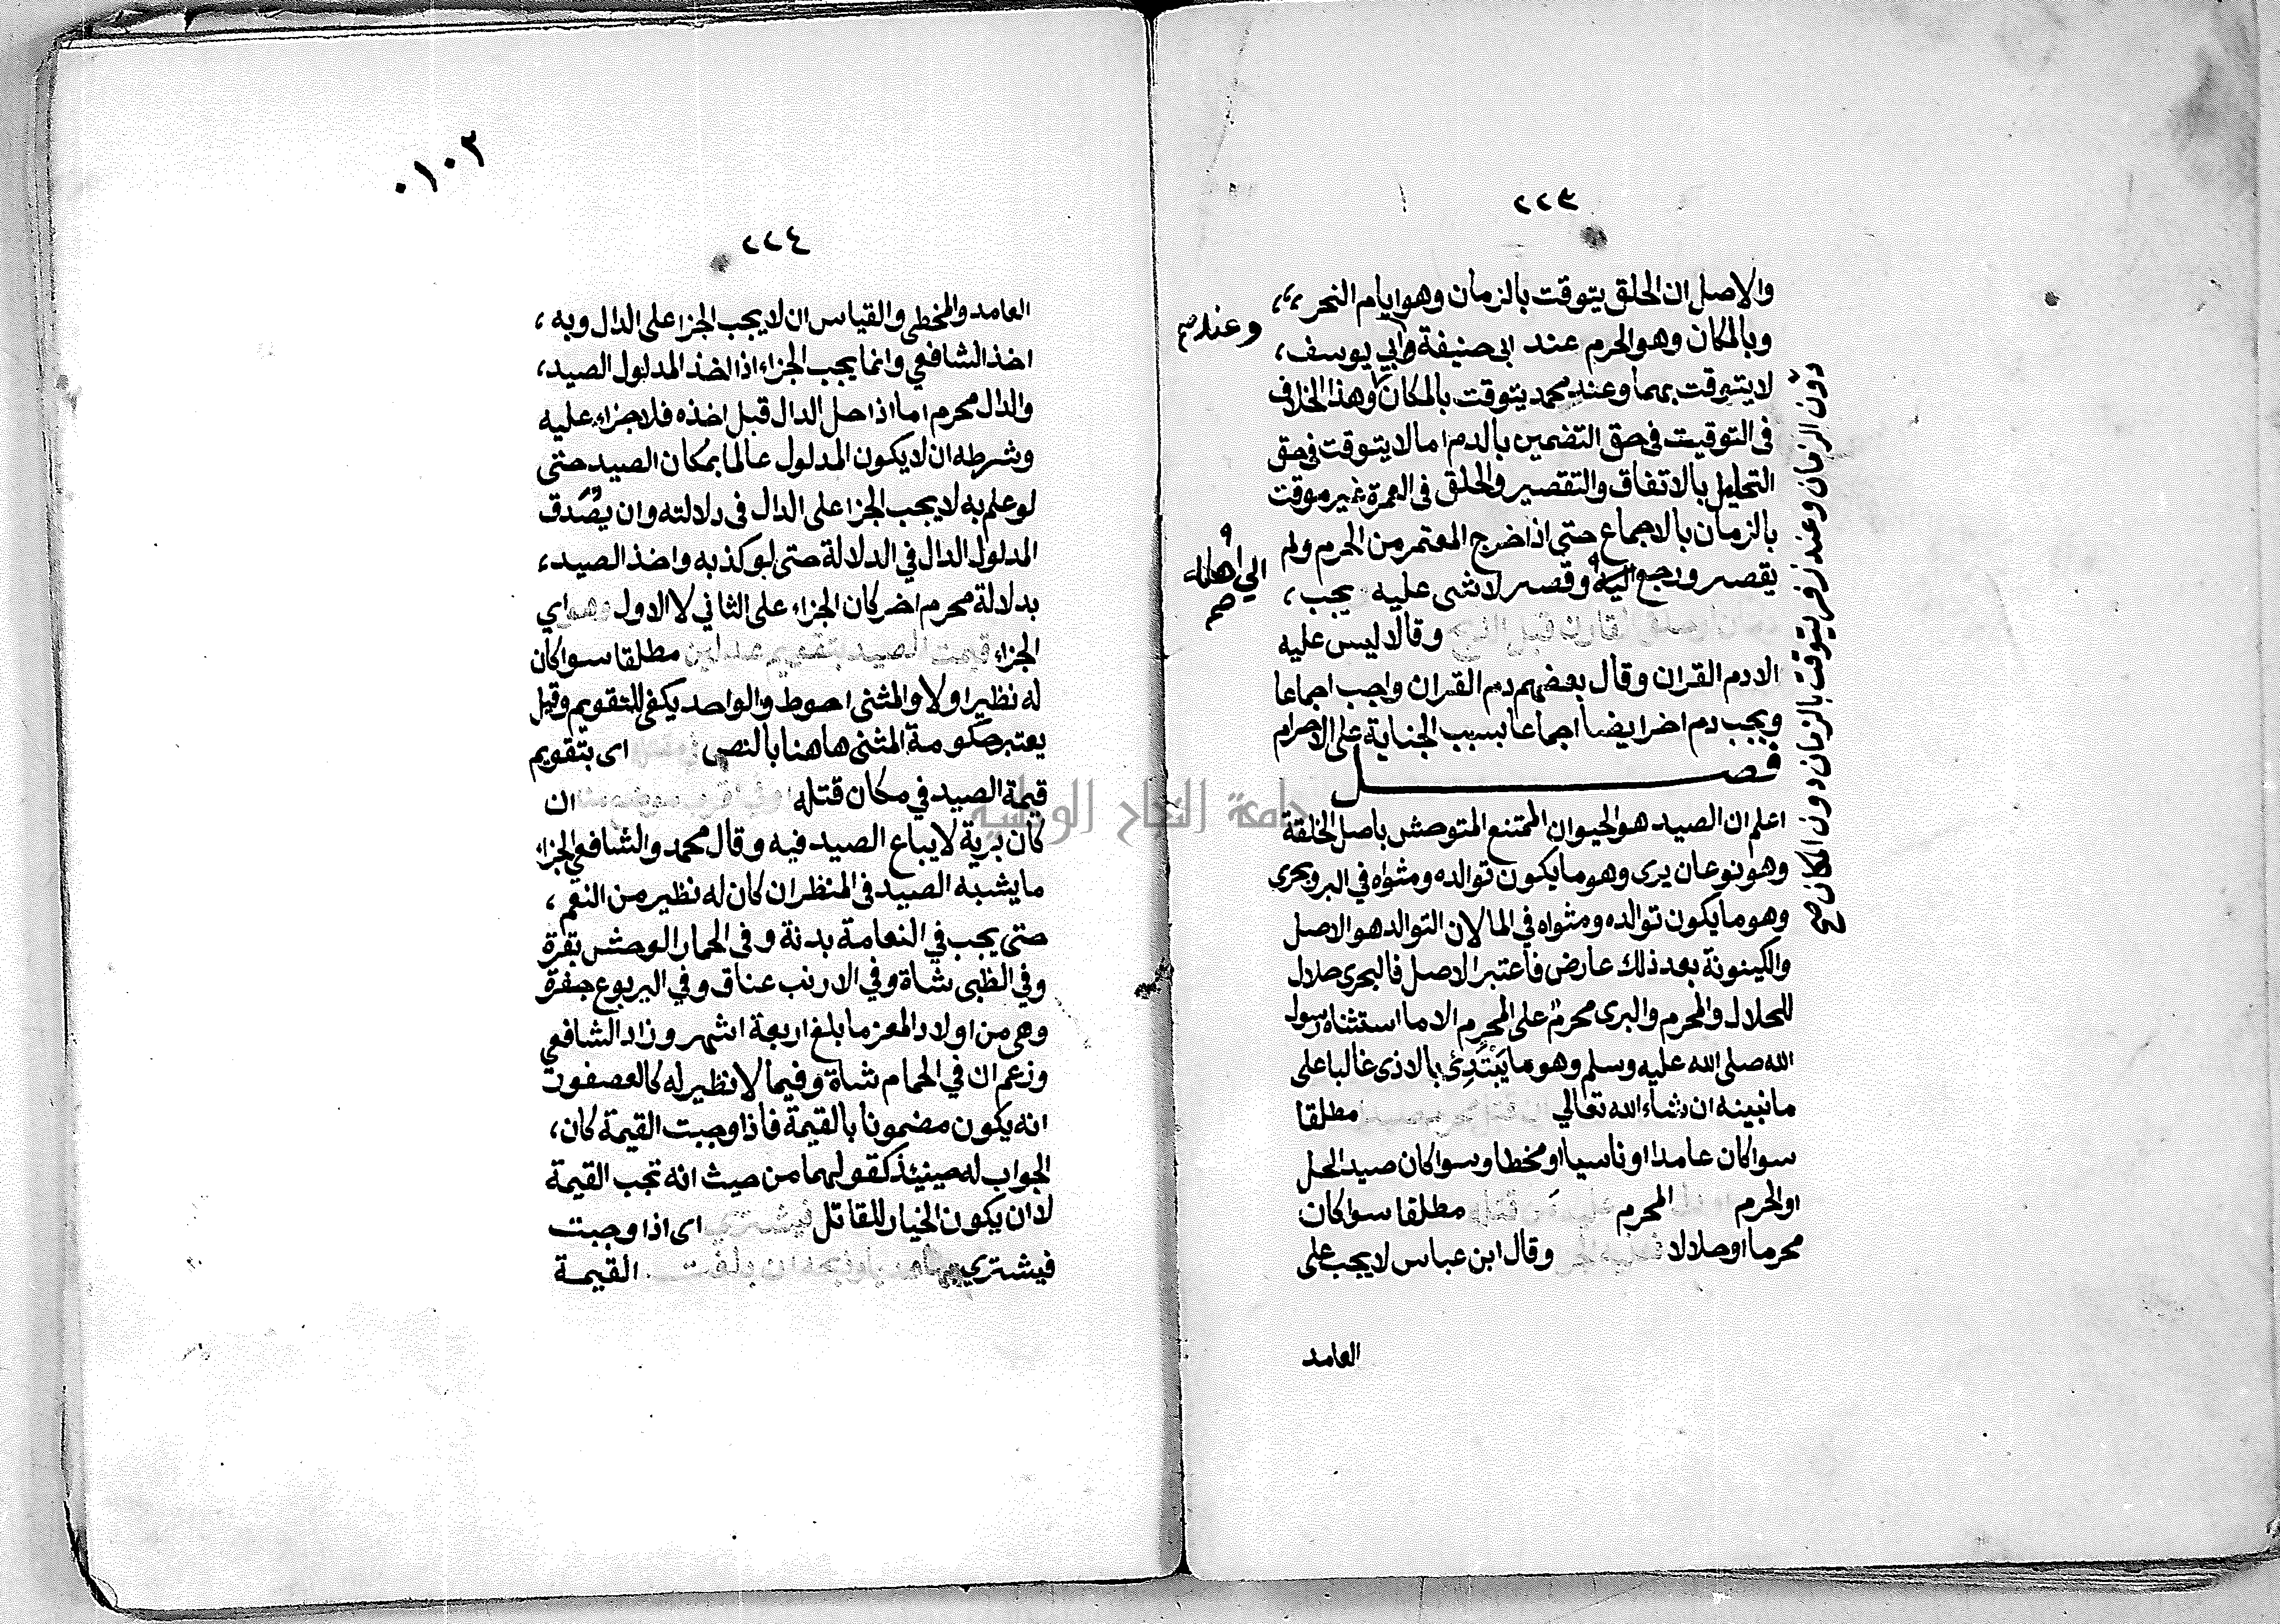 ٢٢٣
والاصل ان الحلق يتوقت بالزمان وهو ايام النحر
وبالمكان وهو الحرم عند ابى حنيفة وابي يوسف،
وعند
لا يتوقت بهما وعند محمد يتوقت بالمكان وهذا الخلاف
فى التوقيت فى حق التضمين بالدم اما لا يتوقت فى حق
التحليل بالاتفاق والتقصير والحلق فى العمرة غير موقت
بالزمان بالاجماع حتى اذا خرج المعتمر من الحرم ولم
يقصر ورجع اليه وقصر لا شى عليه يجب،
الي اهله
صح
القارن قبل الذبح وقالا ليس عليه
الا دم القران وقال بعضهم دم القران واجب اجماعا
ويجب دم اخر ايضا اجماعا بسبب الجناية على الاحرام
فصل
اعلم ان الصيد هو الحيوان الممتنع المتوحش باصل الخلقة
وهو نوعان برى وهو ما يكون توالده ومثواه في البر وبحرى
وهو ما يكون توالده ومثواه في الما لان التوالد هو الاصل
والكينونة بعد ذلك عارض فاعتبر الاصل فالبحرى حلال
للحلال والمحرم والبرى محرم على المحرم الا ما استثناه رسول
الله صلى الله عليه وسلم وهو ما يَبْتَدِئ بالاذى غالبا على
ما نبينه ان شاء الله تعالي مطلقا
سوا كان عامدا او ناسيا او مخطا وسوا كان صيد الحل
او الحرم المحرم من قتله مطلقا سوا كان
محرما او حلالا وقال ابن عباس لا يجب على
العامد
دون الزمان وعند زفر يتوقت بالزمان دون المكان صح
٠١٠٢
٢٢٤
العامد والمخطى والقياس ان لا يجب الجزا على الدال وبه،
اخذ الشافعي وانما يجب الجزاء اذا اخذ المدلول الصيد،
والدال محرم اما اذا حل الدال قبل اخذه فلا جزاء عليه
وشرطه ان لا يكون المدلول عالما بمكان الصيد حتى
لو علم به لا يجب الجزا على الدال فى دلالته وان يصدق
المدلول الدال في الدلالة حتى لو كذبه واخذ الصيد،
بدلالة محرم اخر كان الجزاء على الثاني لا الاول وهو اي
الجزاء قيمت الصيد بتقويم عدلين مطلقا سوا كان
له نظير اولا والمثنى احوط والواحد يكفى للتقويم وقيل
يعتبر حكومة المثنى هاهنا بالنص اى بتقويم
قيمة الصيد في مكان قتله ان
كان برية لا يباع الصيد فيه وقال محمد والشافعي الجزاء
ما يشبه الصيد فى المنظر ان كان له نظير من النعم،
حتى يجب في النعامة بدنة وفى الحمار الوحش بقرة
وفي الظبى شاة وفي الارنب عناق وفي اليربوع جفرة
وهى من اولاد المعز ما بلغ اربعة اشهر وزاد الشافعي
وزعم ان في الحمام شاة وفيما لا نظير له كالعصفور
انه يكون مضمونا بالقيمة فاذا وجبت القيمة كان،
الجواب له حينيئذ كقولهما من حيث انه تجب القيمة
لا ان يكون الخيار للقاتل فيشترى اى اذا وجبت
فيشتري ان بلغت القيمة
جامعة النجاح الوطنية